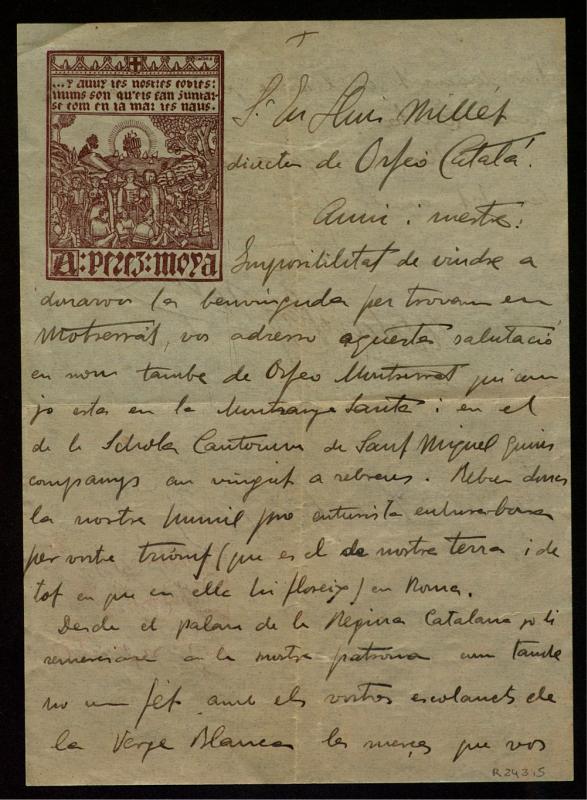 ... y auuy les nostres cobles:
nius son qu'els fan juntar-
se com en la mar les naus.
A: perez: moya
Sr En Lluis Millét
director de Orfeó Català.
Amic i mestre:
Imposibilitat de vindre a
donarvos la benvinguda per trovarm en
Motserrat, vos adresso aquesta salutació
en nom també de Orfeo Montserrat qui com
jo esta en la Muntanya Santa i en el
de la Schola Cantorum de Sant Miquel quins
companys an vingut a rebreus. Rebeu doncs
la nostre humil pro enturista enhorabona
per vostre triomf (que es el de nostre terra i de
tot en que en ella hi floreix) en Roma.
Desde el palau de la Regina Catalana jo li
remerciare a la nostre patrona com també
ho em fét amb els vostres escolanets de
la Verge Blanca les merçes que vos
R 243,5